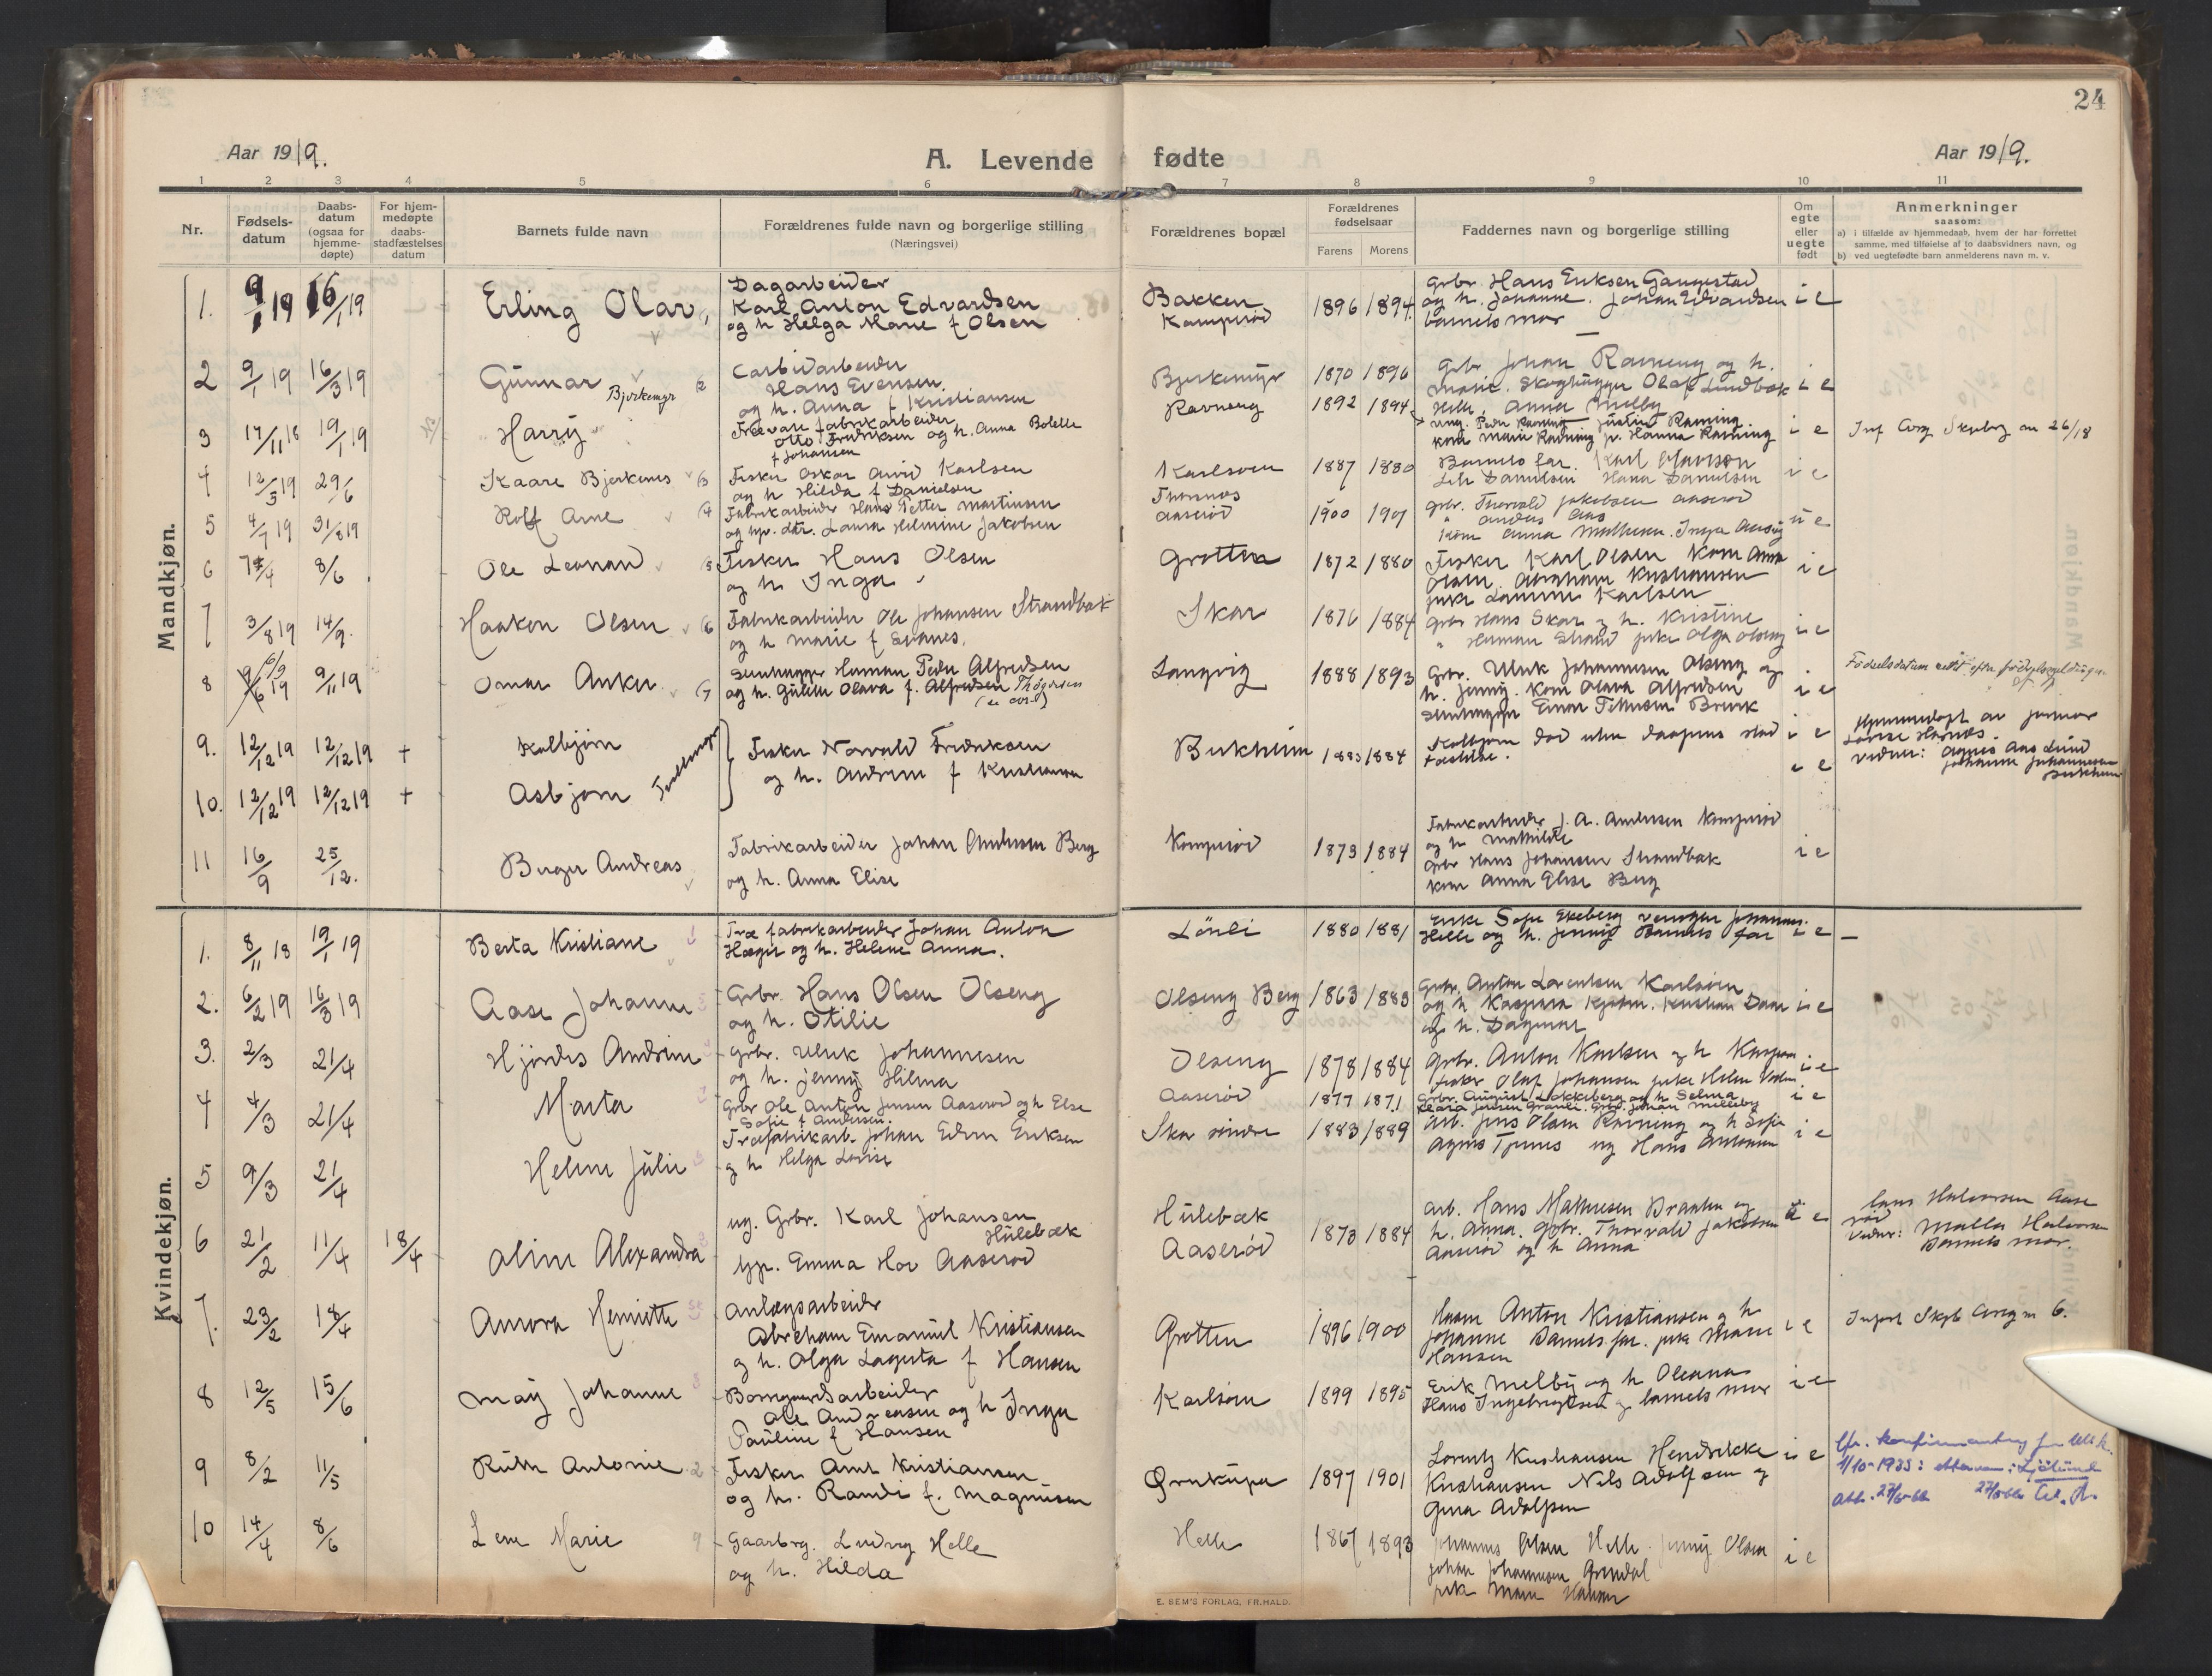 24
Aar 1919.
A. Levende fødte
Aar 1919.
1 2 3 4 5 6 7 8 9 10 11
Nr.
Fødsels-
datum
Daabs-
datum
(ogsaa for
hjemme-
døpte)
For hjem-
medøpte
daabs-
stadfæstelses
datum
Barnets fulde navn
Forældrenes fulde navn og borgerlige stilling
(Næringsvei)
Forældrenes bopæl
Forældrenes
fødselsaar
Farens Morens
Faddernes navn og borgerlige stilling
Om
egte
eller
uegte
født
Anmerkninger
saasom:
a) i tilfælde av hjemmedaab, hvem der har forrettet
samme, med tilføielse af to daabsvidners navn, og
b) ved uegtefødte barn anmelderens navn m. v.
Mandkjøn.
1. 9/1 19 16/1 19 Erling Olav
Dagarbeider
Karl Anton Edvardsen
og h Helga Marie f Olsen
Bakken
Kamperød
1896 1894
Grbr. Hans Eriksen Gangestad
og h. Johanne. Johan Edvardsen
barnets mor
i e
2 9/1 19 16/3 19 Gunnar Bjerkemyr
Carbidarbeider
Hans Evensen
og h. Anna f Kristiansen
Bjerkemyr
1870 1896
Grbr Johan Ravneng og h.
Marie. Skoghugger Olaf Lindbæk
Helle, Anna Melby
i e
3 17/11 18 19/1 19 Harry
Trævare fabrikarbeider
Otto Fredriksen og h. Anna Bolette
f Johansen
Ravneng
1892 1894
ung. Peder Ravneng Justin Ravning
kone Marie Ravning pr. Hanna Ravning
i e
4 12/5 19 29/6 Kaare Bjerkenes
Fisker Oskar Arvid Karlsen
og h Hilda f Danielsen
Karlsøen
1887 1880
Barnets far. Karl
Danielsen Hana Danielsen
i e
5 4/7 19 31/8 19 Rolf Arne
Fabrikarbeider Hans Petter Martinsen
og yp. dtr. Laura Helmine Jakobsen
Thorsnæs
Aaserød
1900 1901
Grbr. Thorvald Jakobsen Aaserød
" Anders Aas
kone Anna Mathisen. Inga Aaseng
u e
6 8/6 Ole Leonard
Fisker Hans Olsen
og h Inga
Grotten
1872 1880
Fisker Karl Olsen Kone Anna
Olsen. Abraham Kristiansen
pike Karlsen
i e
7 3/8 19 14/9. Haakon Olsen
Fabrikarbeider Ole Johansen Strandbæk
og h Marie f Svanes.
Skar
1876 1884
Grbr Hans Skar og h. Kristine
" Herman Strand pike Olga Olseng
i e
8 9/11 19 Omar Anker
Stenhugger Herman Peder Alfredsen
og h. Gulette Olava f. Alfredsen Thögersen
Langvig
1888 1893
Grbr. Ulrik Johannesen Olseng og
h. Jenny. Kone Olava Alfredsen
Stenhugger Einar
i e
9. 12/12 19 12/12 19 + Kolbjørn
10. 12/12 19 12/12 19 + Asbjørn
Fisker Norvald Fredriksen
og h. Andrine f Kristiansen
Birkheim
1883 1884
Kolbjørn død uten daapens stad
fæstelse.
i e
i e
Hjemmedøpt av jormor
Lovise
vidner: Agnes Aas Lund
Johanne Johannesen
11 16/9 25/12. Birger Andreas
Fabrikarbeider Johan Andersen Berg
og h. Anna Elise
Kamperød
1873 1884
Fabrikarbeider J. A. Andersen Kamperød
og h Mathilde
Grbr Hans Johansen Strandbæk
kone Anna Elise Berg
i e
Kvindekjøn.
1. 8/11 18 19/1 19 Berta Kristiane
Træ fabrikarbeider Johan Anton
Hæger og h. Helene Anna.
Lönli
1880 1881
Enke Sofie Ekeberg Johannes
Helle og h. Jenny Barnets far
i e
2. 6/2 19 16/3 19 Aase Johanne
Grbr. Hans Olsen Olseng
og h. Otilie
Olseng Berg
1863 1883
Grbr. Anton Lorentsen Karlsøen
og h Kaspara Kristian Dam
og h. Dagmar
i e
3. 2/3 21/4 Hjördis Andrine
Grbr. Ulrik Johannesen
og h. Jenny Hilma
Olseng
1878 1884
Grbr. Anton Karlsen og h Kaspara
fisker Olaf Johansen pike Helen
i e
4 4/3 21/4 Marta
Grbr Ole Anton Jensen Aaserød og h Else
Sofie f Andersen
Aaserød
1877 1871
Grbr. August Løkkeberg og h Selma
Klara Jensen Granli. Grbr. Johan Milleby
i e
5 9/3 21/4 Helene Julie
Træfabrikarb. Johan Edvin Eriksen
og h Helga Lovise
Skar søndre
1883 1889
Arb. Jens Olsen Ravneng og h Sofie
Agnes og Hans Antonsen
i e
6 21/2 11/4 18/4 Aline Alexandra
ug. Grbr. Karl Johansen
Hülebæk
yp. Emma Hov Aaserød
Hülebæk
Aaserød
1873 1884
Arb. Hans Mathiesen Braaten og
h. Anna. Grbr. Thorvald Jakobsen
Aaserød og h Anna
u e
Lars Halvorsen Aase
rød
vidner: Malla Halvorsen
Barnets mor.
7. 23/2 18/4 Aurora Henriette
Anlægsarbeider
Abraham Emanuel Kristiansen
og h. Olga Lagerta f Hansen
Grotten
1896 1900
Anton Kristiansen og h
Johanne Barnets far. pike Marie
Hansen
i e
8 12/5 15/6 May Johanne
Borregaardsarbeider
Ole Andreasen og h Inga
Pauline f Hansen
Karlsøen
1899 1895
Erik Melby og h Oleana
Hans Ingebrigtsen og barnets mor
i e
9 8/2 11/5 Ruth Antonie
Fisker Arnt Kristiansen
og h. Randi f. Magnusen
Ørnkupa
1897 1901
Lorentz Kristiansen Hendrikke
Kristiansen Nils Adolfsen og
Gina Adolfsen
i e
10 14/4 8/6 Lene Marie
Gaarbrg. Ludvig Helle
og h. Hilda
Helle
1867 1893
Johannes Olsen Helle. Jenny Olsen
Johan Johannesen Grendal
pike Marie Hansen
i e
E. SEM'S FORLAG, FR.HALD.